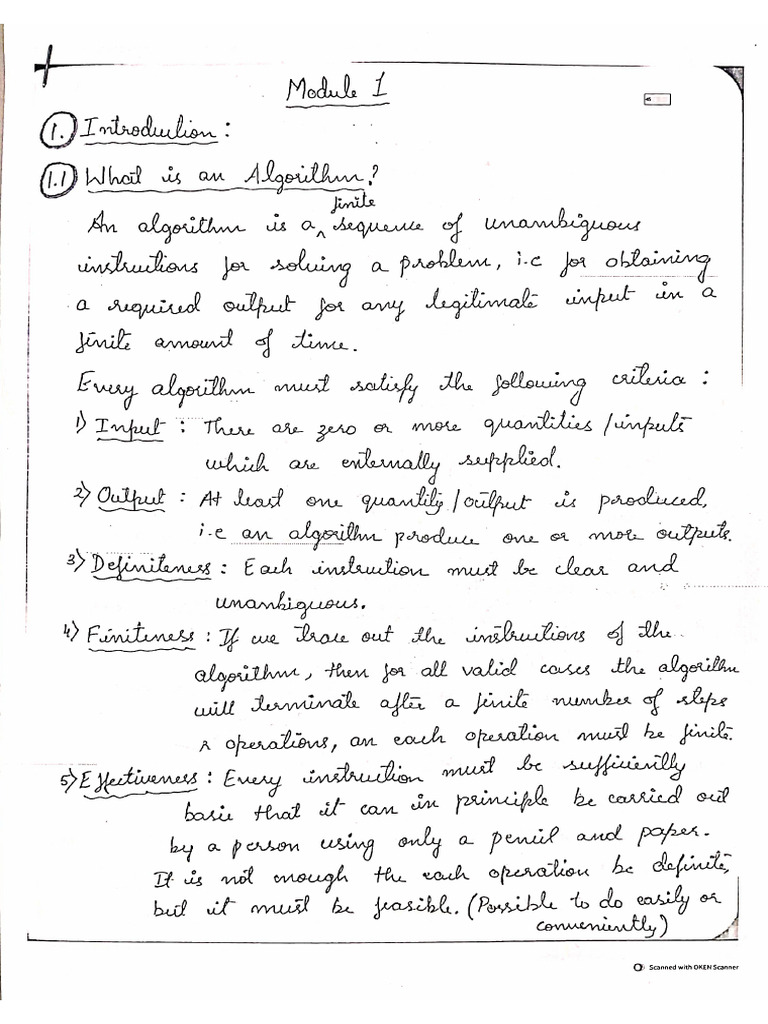 Module 1
1. Introduction :
1.1 What is an Algorithm?
An algorithm is a finite sequence of unambiguous
instructions for solving a problem, i.e for obtaining
a required output for any legitimate input in a
finite amount of time.
Every algorithm must satisfy the following criteria :
1) Input : There are zero or more quantities/inputs
which are externally supplied.
2) Output : At least one quantity/output is produced,
i.e an algorithm produce one or more outputs.
3) Definiteness : Each instruction must be clear and
unambiguous.
4) Finiteness : If we trace out the instructions of the
algorithm, then for all valid cases the algorithm
will terminate after a finite number of steps
operations, an each operation must be finite.
5) Effectiveness : Every instruction must be sufficiently
basic that it can in principle be carried out
by a person using only a pencil and paper.
It is not enough the each operation be definite,
but it must be feasible. (Possible to do easily or
conveniently)
Scanned with OKEN Scanner